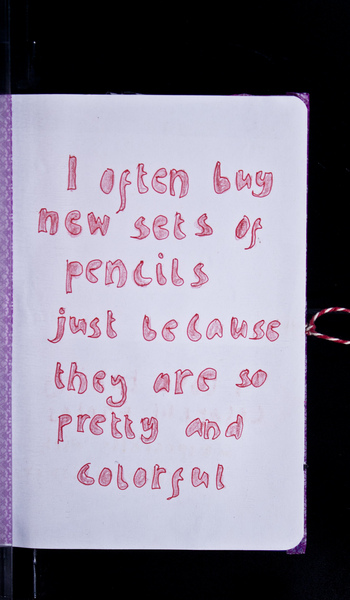 I often buy
new sets of
pencils
just because
they are so
pretty and
colorful